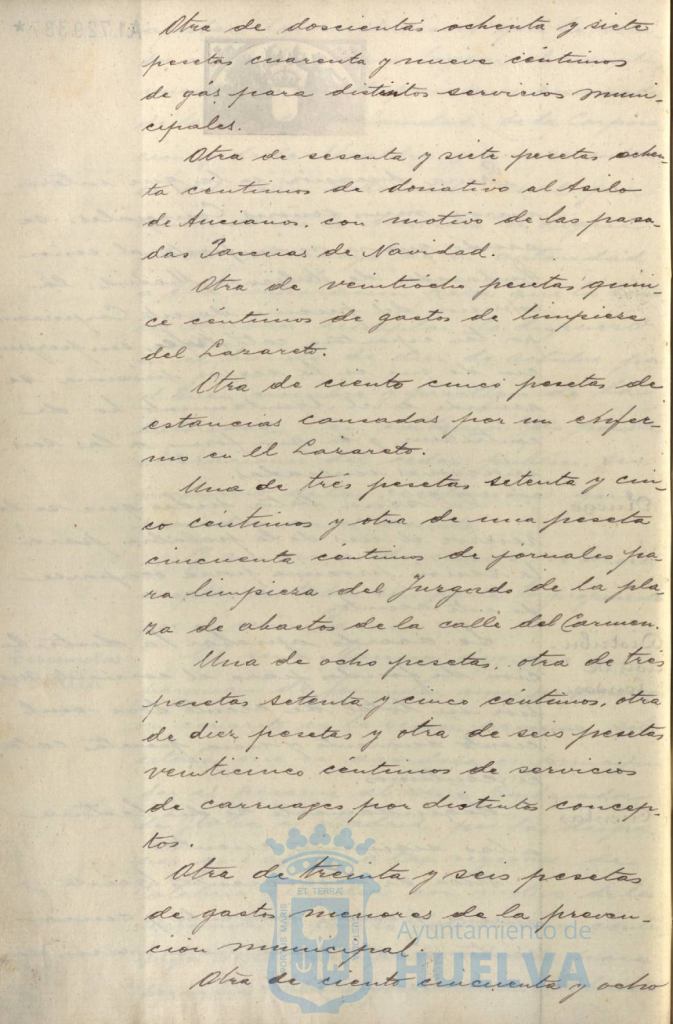 Otra de doscientas ochenta y siete
pesetas cuarenta y nueve céntimos
de gás para distintos servicios muni-
cipales.
Otra de sesenta y siete pesetas ochen-
ta céntimos de donativo al Asilo
de Ancianos, con motivo de las pasa-
das Pascuas de Navidad.
Otra de veintiocho pesetas quin-
ce céntimos de gastos de limpieza
del Lazareto.
Otra de ciento cinco pesetas de
estancias causadas por un enfer-
mo en el Lazareto.
Una de trés pesetas setenta y cin-
co céntimos y otra de una peseta
cincuenta céntimos de jornales pa-
ra limpieza del Juzgado de la pla-
za de abastos de la calle del Carmen.
Una de ocho pesetas, otra de trés
pesetas setenta y cinco céntimos, otra
de diez pesetas y otra de seis pesetas
veinticinco céntimos de servicios
de carruages por distintos concep-
tos.
Otra de treinta y seis pesetas
de gastos menores de la preven-
ción municipal.
Otra de ciento cincuenta y ocho
Ayuntamiento de
HUELVA
ET TERRÆ
PORTUS MARIS
CUSTODIA